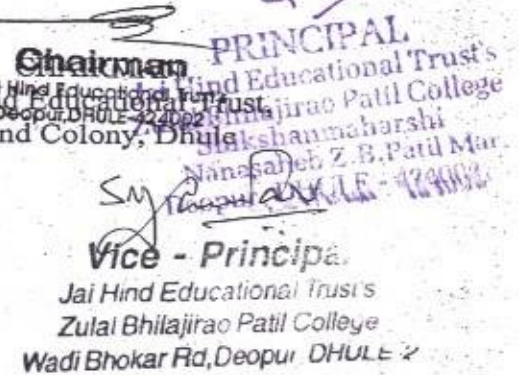 Chairman
Hind Educational Trust
d Educational Trust,
Deopur, DHULE-424002
nd Colony, Dhule
PRINCIPAL
Jai Hind Educational Trust's
Zulal Bhilajirao Patil College
Shikshanmaharshi
Nanasaheb Z.B.Patil Mar.
Deopur, DHULE - 424002
Vice - Principa
Jai Hind Educational Trust's
Zulal Bhilajirao Patil College
Wadi Bhokar Rd,Deopur DHULE 2